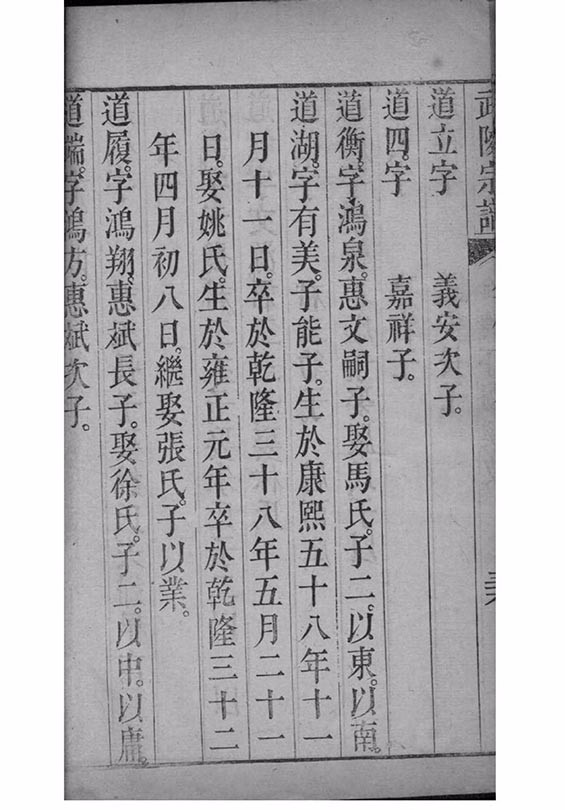 武陵宗譜
道立字　　義安次子。
道四。字　　嘉祥子。
道衡。字鴻泉。惠文嗣子。娶馬氏。子二。以東。以南。
道湖。字有美。子能子。生於康熙五十八年十一
月十一日。卒於乾隆三十八年五月二十一
日。娶姚氏。生於雍正元年卒於乾隆三十二
年四月初八日。繼娶張氏。子以業。
道履。字鴻翔。惠斌長子。娶徐氏。子二。以中。以庸。
道端。字鴻方。惠斌次子。